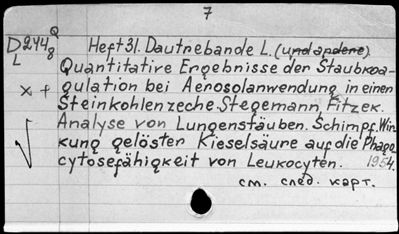 7
D 244 Q 8 Heft 31. Dautrebande L. (und andere)
L Quantitative Ergebnisse der Staubkoa-
x + gulation bei Aerosolanwendung in einen
Steinkohlenzeche. Stegemann, Fitzek.
Analyse von Lungenstäuben. Schimpf. Wir-
kung gelösten Kieselsäure auf die Phago-
cytosefähigkeit von Leukocyten. 1954.
см. след. карт.